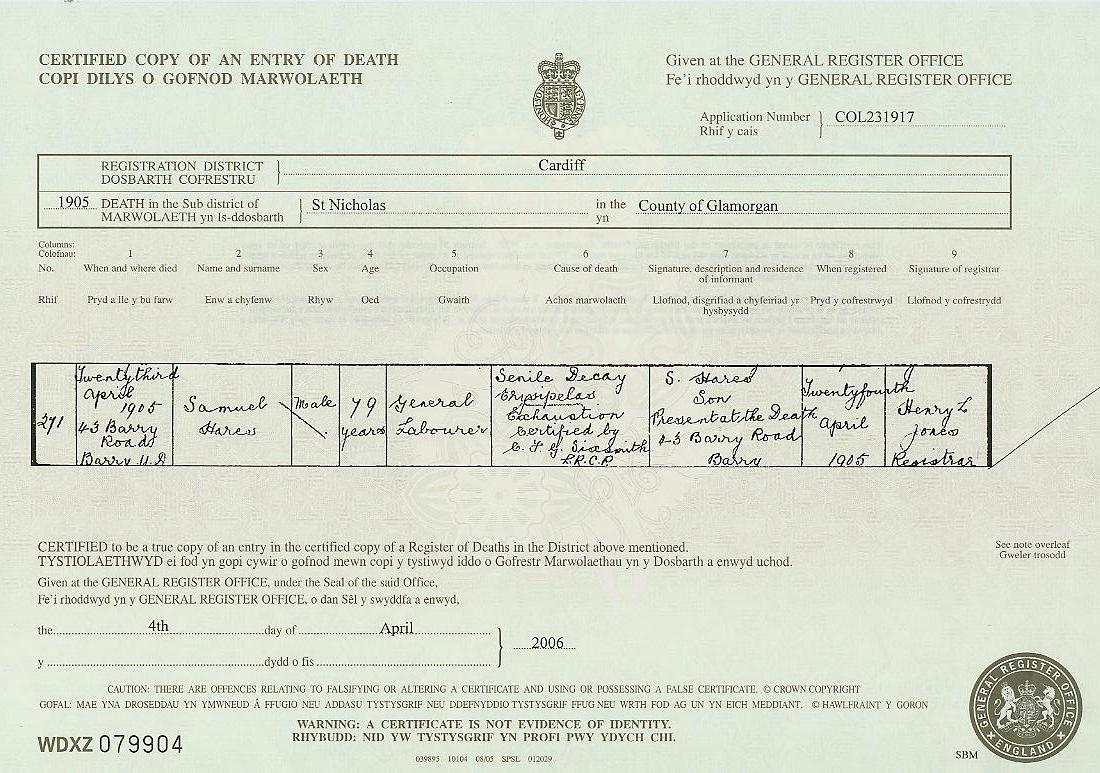 CERTIFIED COPY OF AN ENTRY OF DEATH
COPI DILYS O GOFNOD MARWOLAETH
Given at the GENERAL REGISTER OFFICE
Fe'i rhoddwyd yn y GENERAL REGISTER OFFICE
Application Number COL231917
Rhif y cais
REGISTRATION DISTRICT Cardiff
DOSBARTH COFRESTRU
1905 DEATH in the Sub district of St Nicholas in the County of Glamorgan
MARWOLAETH yn Is-ddosbarth yn
Columns:
Colofnau: 1 2 3 4 5 6 7 8 9
No. When and where died Name and surname Sex Age Occupation Cause of death Signature, description and residence of informant When registered Signature of registrar
Rhif Pryd a lle y bu farw Enw a chyfenw Rhyw Oed Gwaith Achos marwolaeth Llofnod, disgrifiad a chyfeiriad yr hysbysydd Pryd y cofrestrwyd Llofnod y cofrestrydd
271
Twentythird
April
1905
43 Barry
Roads
Barry U.D
Samuel
Hares
Male
79
years
General
Labourer
Senile Decay
Erysipelas
Exhaustion
Certified by
C. F. G. Sixsmith
L.R.C.P.
S. Hares
Son
Present at the Death
43 Barry Road
Barry
Twentyfourth
April
1905
Henry L
Jones
Registrar
CERTIFIED to be a true copy of an entry in the certified copy of a Register of Deaths in the District above mentioned.
TYSTIOLAETHWYD ei fod yn gopi cywir o gofnod mewn copi y tystiwyd iddo o Gofrestr Marwolaethau yn y Dosbarth a enwyd uchod.
See note overleaf
Gweler trosodd
Given at the GENERAL REGISTER OFFICE, under the Seal of the said Office,
Fe'i rhoddwyd yn y GENERAL REGISTER OFFICE, o dan Sêl y swyddfa a enwyd,
the 4th day of April 2006
y dydd o fis
CAUTION: THERE ARE OFFENCES RELATING TO FALSIFYING OR ALTERING A CERTIFICATE AND USING OR POSSESSING A FALSE CERTIFICATE. © CROWN COPYRIGHT
GOFAL: MAE YNA DROSEDDAU YN YMWNEUD Â FFUGIO NEU ADDASU TYSTYSGRIF NEU DDEFNYDDIO TYSTYSGRIF FFUG NEU WRTH FOD AG UN YN EICH MEDDIANT. © HAWLFRAINT Y GORON
WARNING: A CERTIFICATE IS NOT EVIDENCE OF IDENTITY.
RHYBUDD: NID YW TYSTYSGRIF YN PROFI PWY YDYCH CHI.
WDXZ 079904
039895 10104 08/05 SPSL 012029
SBM
GENERAL REGISTER OFFICE
ENGLAND